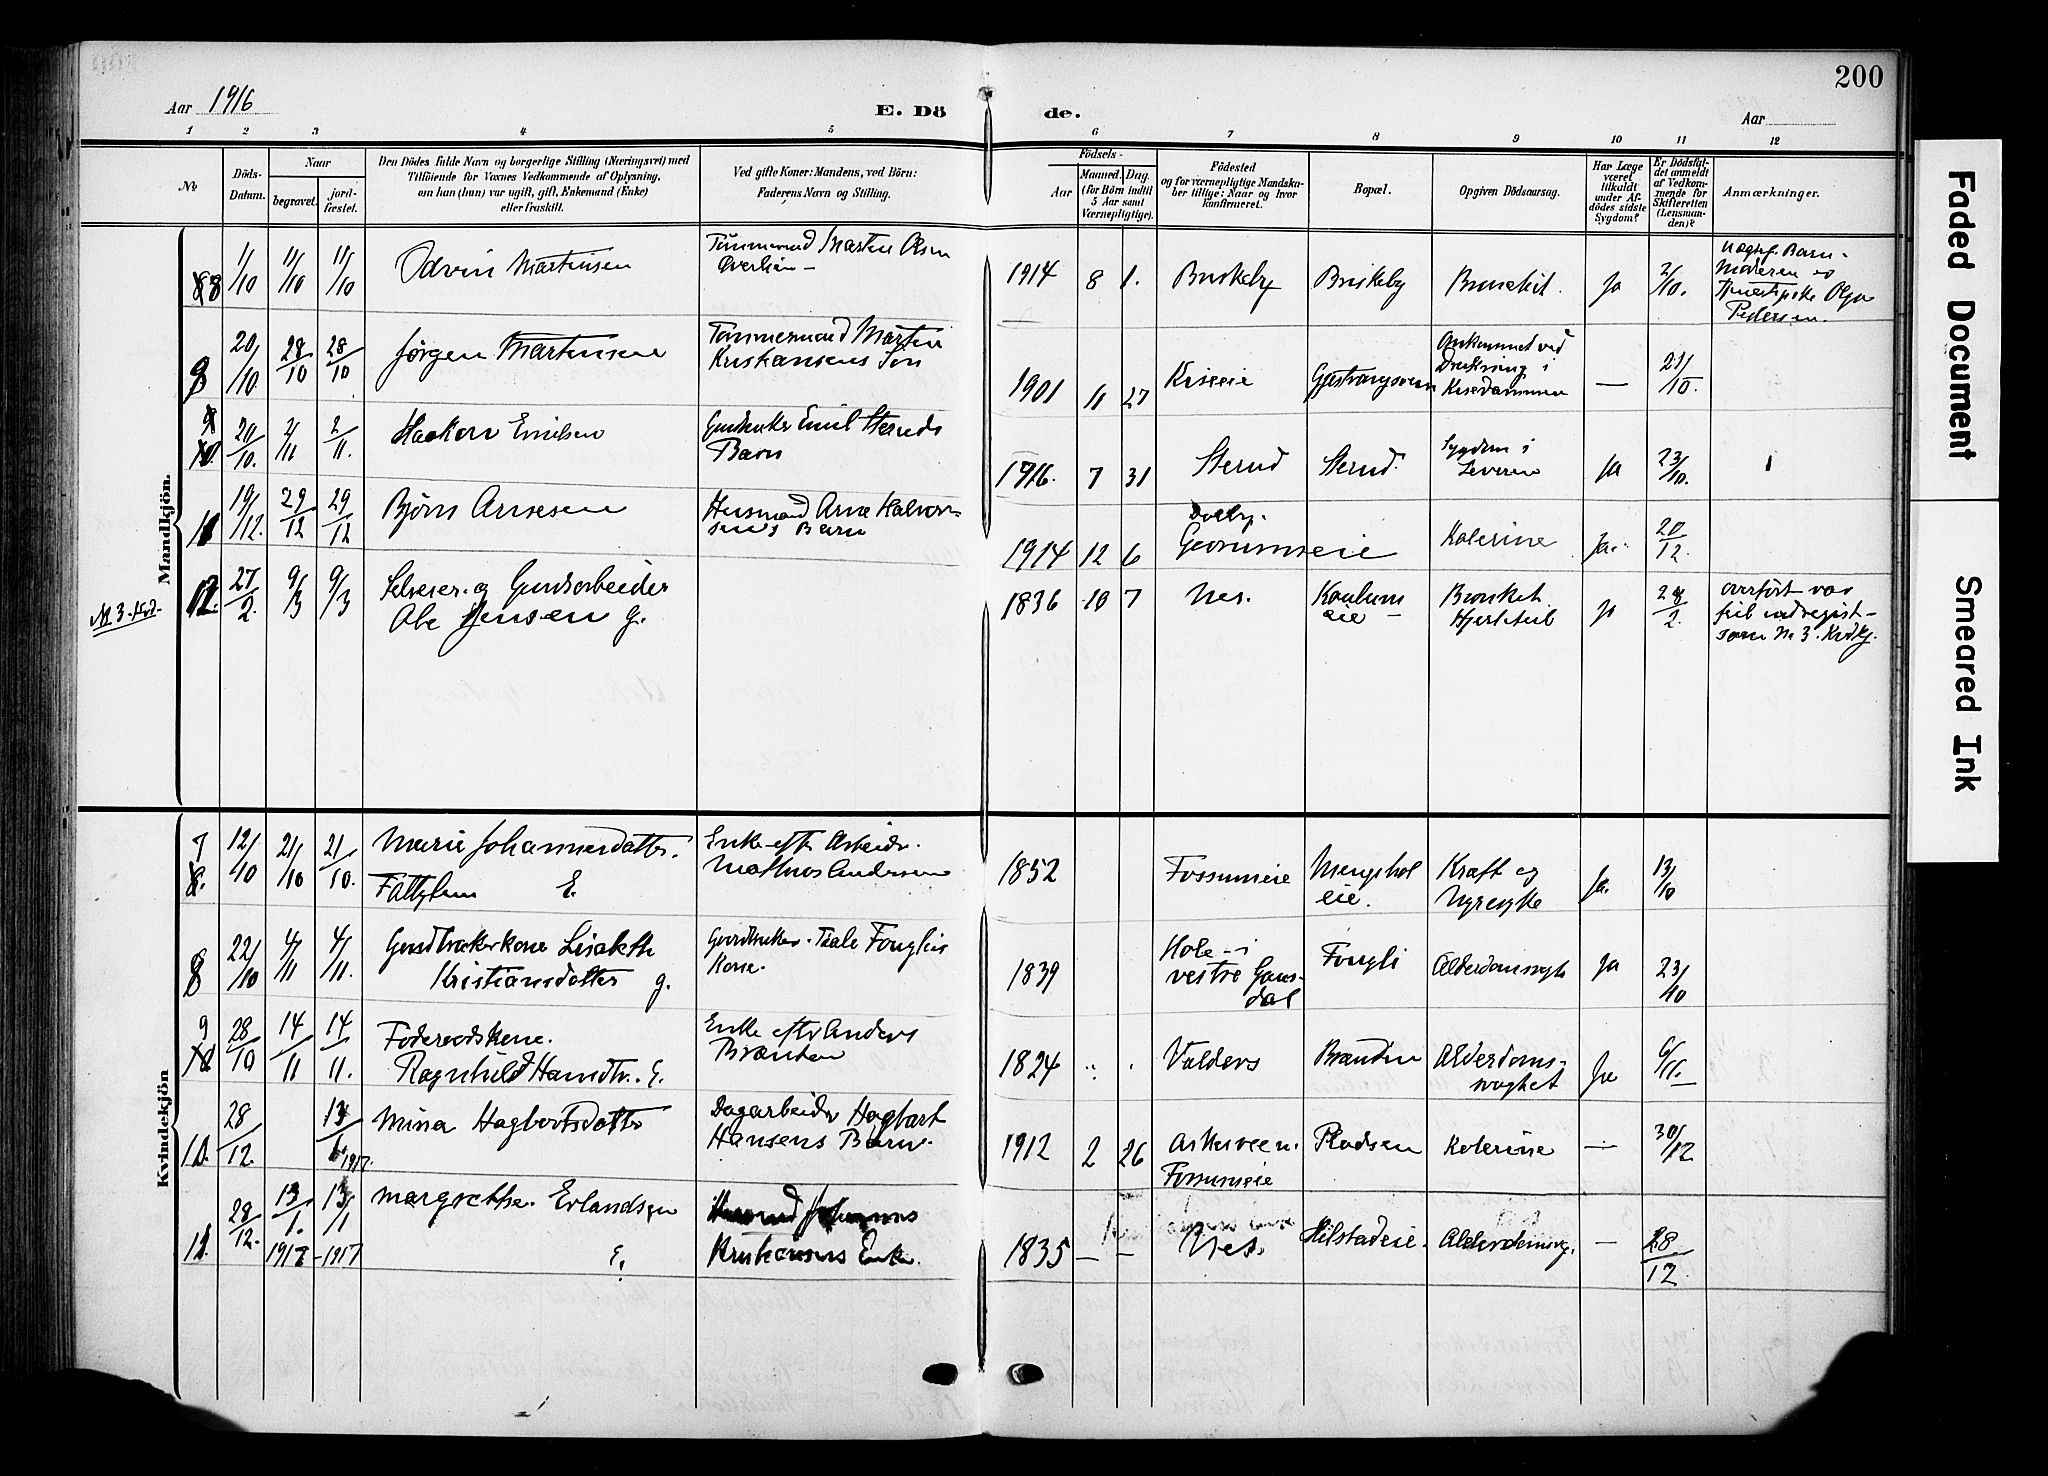 200
Aar 1916
E. Dö
de.
Aar
1 2 3 4 5 6 7 8 9 10 11 12
No
Döds-
Datum.
Naar
begravet.
jord-
fæstet.
Den Dödes fulde Navn og borgerlige Stilling (Næringsvei) med
Tilföiende for Voxnes Vedkommende af Oplysning,
om han (hun) var ugift, gift, Enkemand (Enke)
eller fraskilt.
Ved gifte Koner: Mandens, ved Börn:
Faderens Navn og Stilling.
Födsels-
Aar
Maaned. Dag.
(for Börn indtil
5 Aar samt
Værnepligtige).
Födested
og for værnepligtige Mandska-
ber tillige: Naar og hvor
konfirmeret.
Bopæl.
Opgiven Dödsaarsag.
Har Læge
været
tilkaldt
under Af-
dödes sidste
Sygdom?
Er Dödsfal-
det anmeldt
af Vedkom-
mende for
Skifteretten
(Lensman-
den)?
Anmærkninger.
Mandkjön.
8 1/10 11/10 11/10 Odvin Martinsen
Tömmermand Martin Olsen
1914 8 1. Buskeby Briskeby Bronchit. Ja 2/10.
Barn-
Moderen
Olga
Pedersen.
9 20/10 28/10 28/10 Jørgen Martinsen
Tömmermand Martin
Kristiansens Sön
1901 11 27 Kiseeie 21/10.
Ankommet ved
Drukning i
Kisedammen
10. 20/10. 2/11 2/11. Haakon Emilsen
Gaardbruker Emil Steruds
Barn
1916. 7 31 Sterud Sterud.
Sygdom i
Leveren
Ja 23/10.
11 19/12. 29/12 29/12 Bjørn Arnesen
Husmand Arne Halvor-
sens Barn
1914 12 6 Kolerine Ja. 20/12.
No 3. Kvd.
12. 27/2. 9/3 9/3 Selveier og Gaardarbeider
Ole Jensen g.
1836 10 7 Nes.
eie
Bronkit
Hjertefeil
Ja 28/2.
overfört var
feil indregist-
som No 3. Kvdkj.
Kvindekjön
7 12/10 21/10 21/10. Marie Johannesdatter.
Fattiglem E.
Enke efter Arbeider
Mathias Andersen
1852 Fossumeie Mengshol
eie.
Kræft og
Nyresyke
Ja. 13/10
8 22/10 4/11 4/11. Gaardbrukerkone Lisabeth
Kristiansdatter g.
Gaardbruker
Kone.
1839
Hole i
vestre Gaus-
dal
Fougli Alderdomssvagh Ja 23/10
9 28/10 14/11 14/11. Föderaadskone.
Ragnhild Hansdtr. E.
Enke efter Anders
Brænden
1824 Valders Alderdoms-
svaghet
Ja 6/11.
10. 28/12. 13/1 1917. Mina Hagbertsdatter
Dagarbeider Hagbart
Hansens Barn.
1912 2 26
Fossumeie
Pladsen Kolerine — 30/12
11. 28/12. 13/1. 1917 13/1 1917 Margrethe Erlandsen
E.
Husmand Johannes
Kristiansens Enke.
1835 — — Nes. Hilstadeie. Alderdomsvg. — 28/12.
Faded Document
Smeared Ink